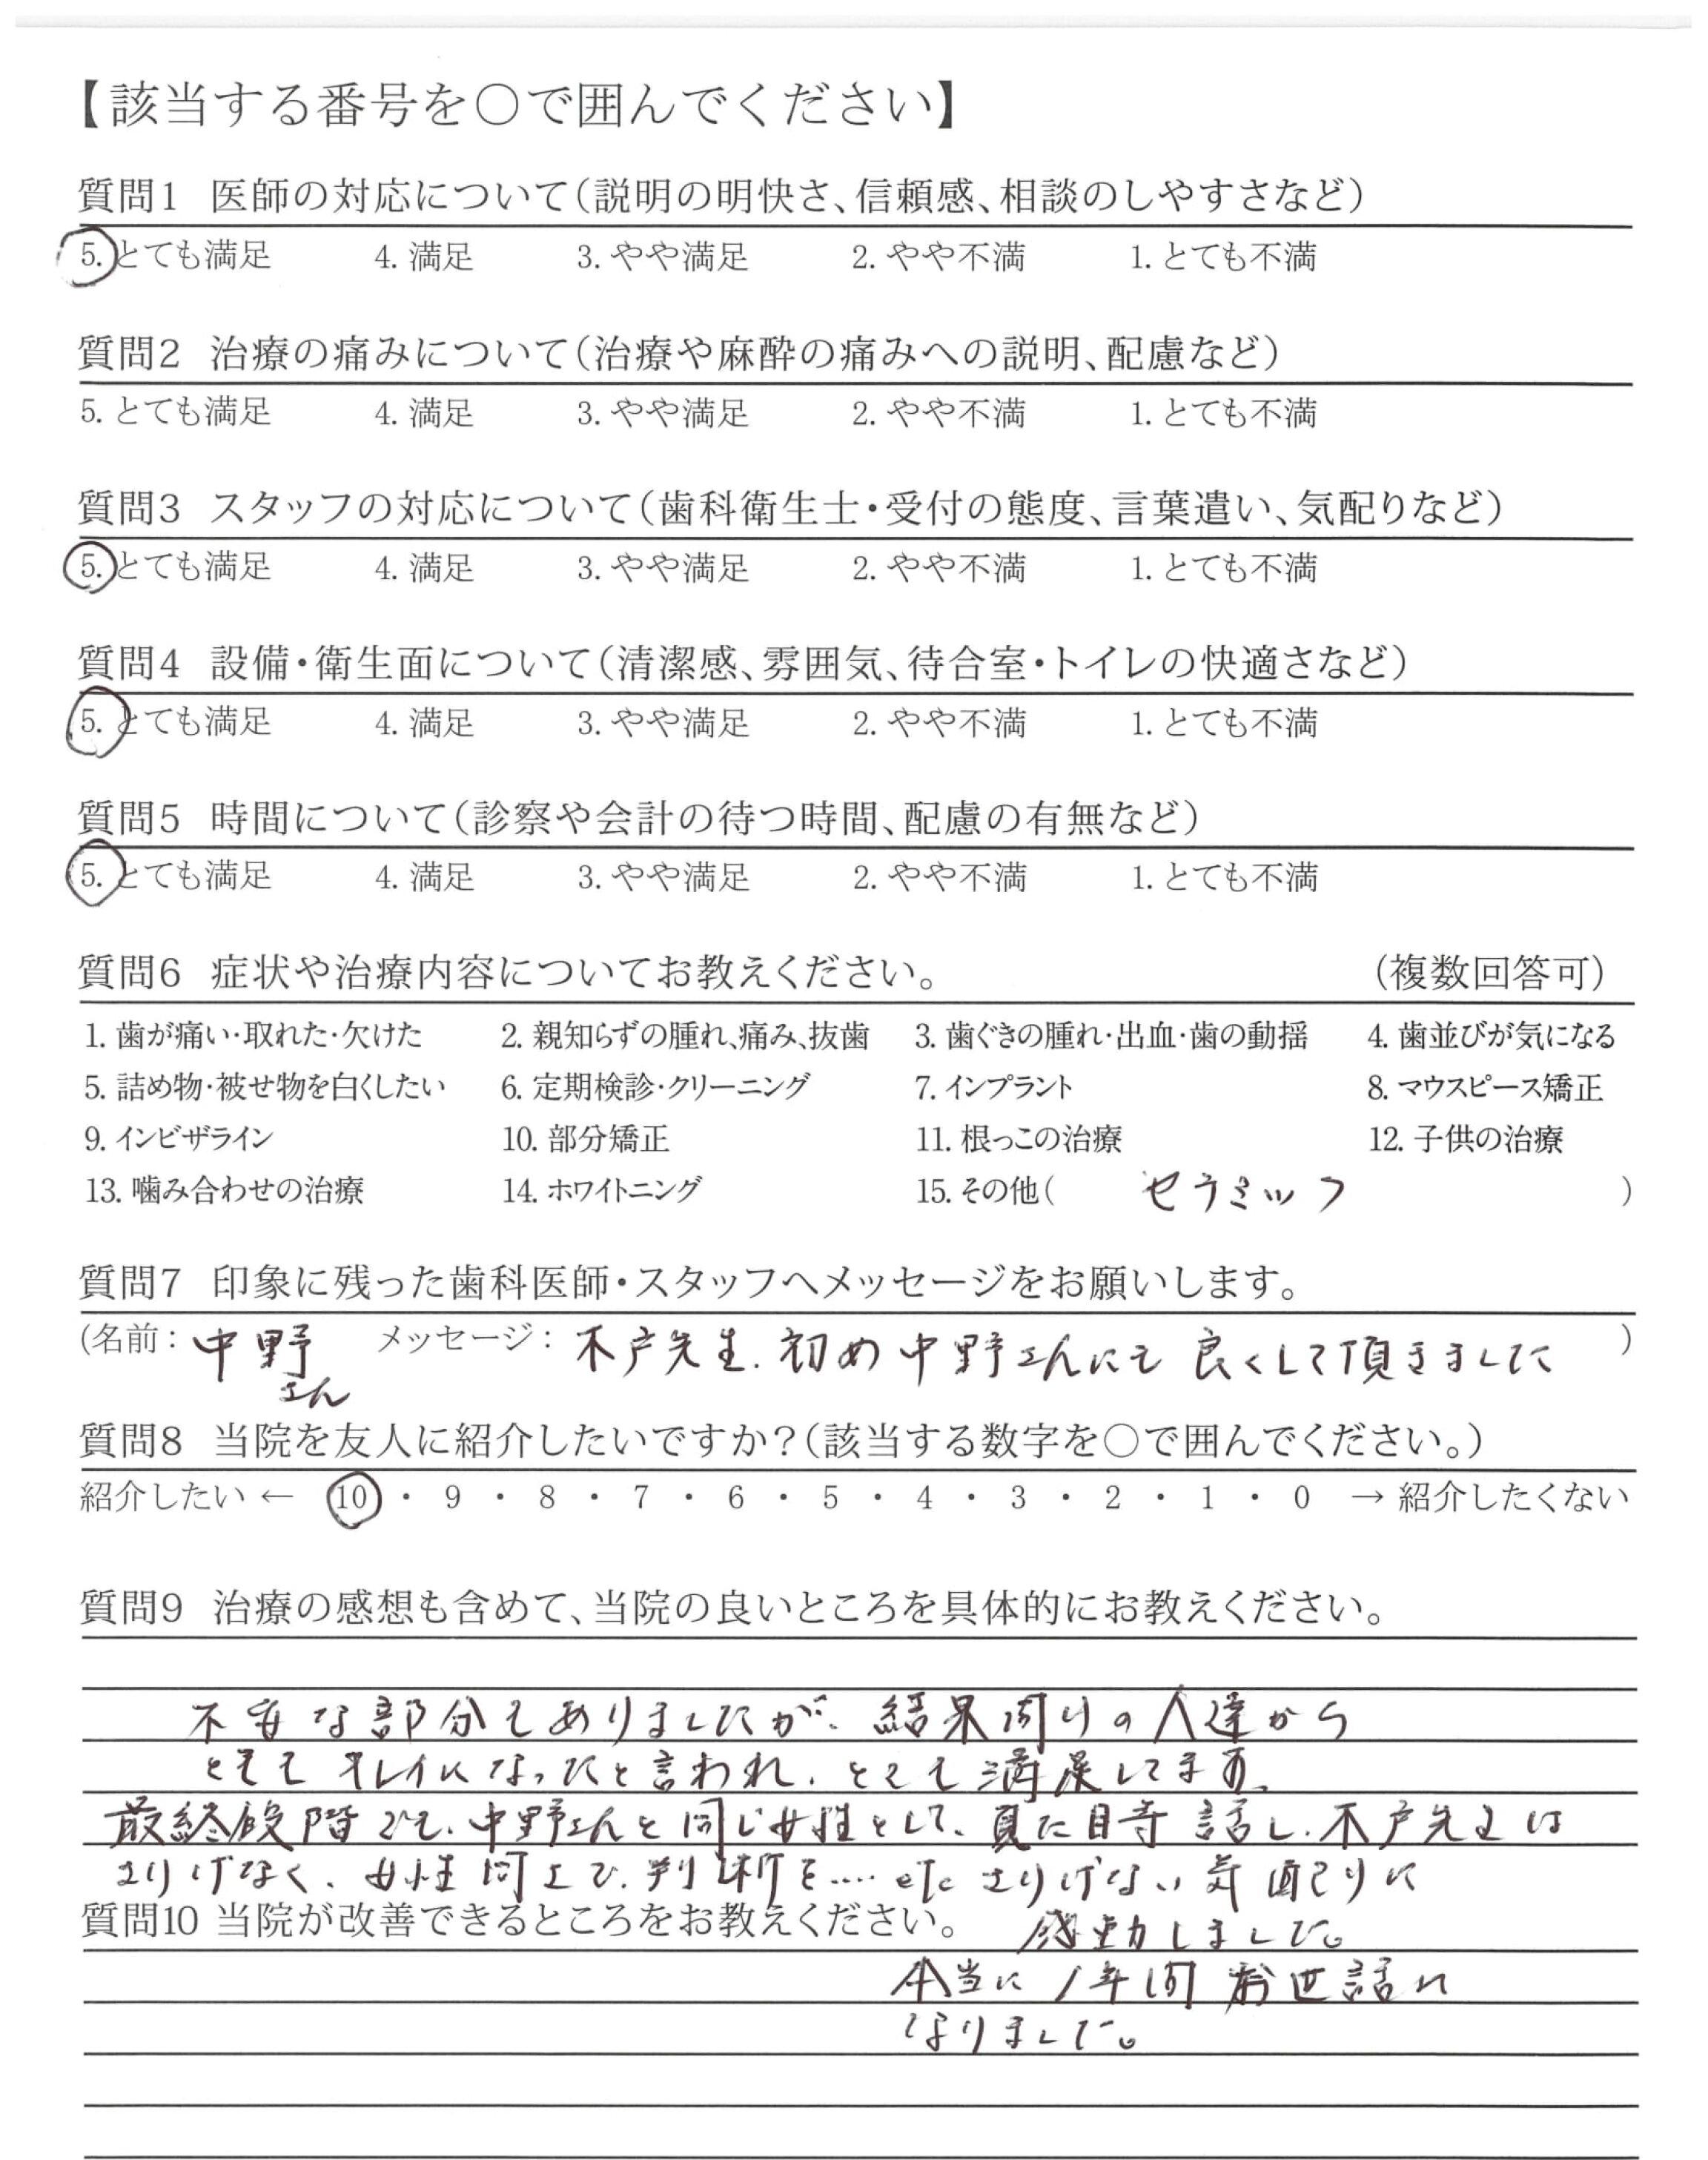 【該当する番号を○で囲んでください】
質問1 医師の対応について(説明の明快さ、信頼感、相談のしやすさなど)
5. とても満足 4. 満足 3. やや満足 2. やや不満 1. とても不満
質問2 治療の痛みについて(治療や麻酔の痛みへの説明、配慮など)
5. とても満足 4. 満足 3. やや満足 2. やや不満 1. とても不満
質問3 スタッフの対応について(歯科衛生士・受付の態度、言葉遣い、気配りなど)
5. とても満足 4. 満足 3. やや満足 2. やや不満 1. とても不満
質問4 設備・衛生面について(清潔感、雰囲気、待合室・トイレの快適さなど)
5. とても満足 4. 満足 3. やや満足 2. やや不満 1. とても不満
質問5 時間について(診察や会計の待つ時間、配慮の有無など)
5. とても満足 4. 満足 3. やや満足 2. やや不満 1. とても不満
質問6 症状や治療内容についてお教えください。 (複数回答可)
1. 歯が痛い・取れた・欠けた 2. 親知らずの腫れ、痛み、抜歯 3. 歯ぐきの腫れ・出血・歯の動揺 4. 歯並びが気になる
5. 詰め物・被せ物を白くしたい 6. 定期検診・クリーニング 7. インプラント 8. マウスピース矯正
9. インビザライン 10. 部分矯正 11. 根っこの治療 12. 子供の治療
13. 噛み合わせの治療 14. ホワイトニング 15. その他( セラミック )
質問7 印象に残った歯科医師・スタッフへメッセージをお願いします。
(名前: 中野さん メッセージ: 木戸先生、初め中野さんにも良くして頂きました )
質問8 当院を友人に紹介したいですか?(該当する数字を○で囲んでください。)
紹介したい ← 10 ・ 9 ・ 8 ・ 7 ・ 6 ・ 5 ・ 4 ・ 3 ・ 2 ・ 1 ・ 0 → 紹介したくない
質問9 治療の感想も含めて、当院の良いところを具体的にお教えください。
不安な部分もありましたが、結果周りの人達から
とてもキレイになったと言われ、とても満足してます。
最終段階でも、中野さんと同じ女性として、見た目等話し、木戸先生は
さりげなく、女性同士で、判断を‥‥etc さりげない気配りに
感動しました。
質問10 当院が改善できるところをお教えください。
本当に1年間お世話に
なりました。